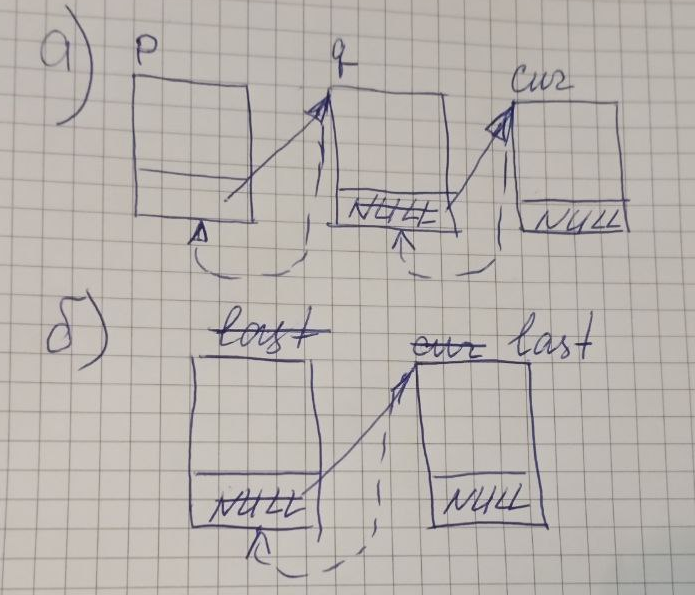 а) p q cur
NULL NULL
б) last cur last
NULL NULL